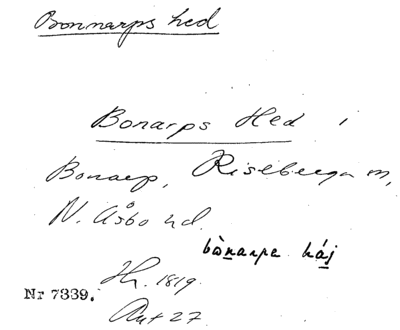 Bonnarps hed
Bonarps Hed i
Bonarp, Riseberga sn,
N. Åsbo hd.
bònarpa háj
Hr. 1819.
Nr 7339.
Ant 27